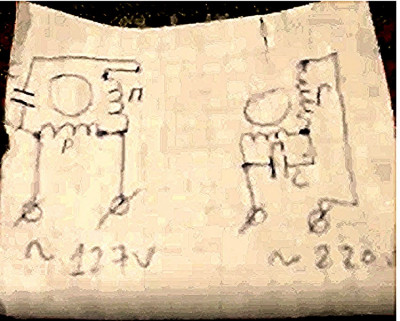 П
P
C
~ 127V
~ 220